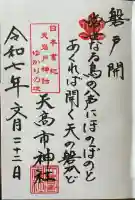 磐戸開
なる鳥の声にほのぼのと
あくれば開く天の磐かど
日本書紀
天岩戸神話
ゆかりの地
天高市神社
令和七年 文月二十三日